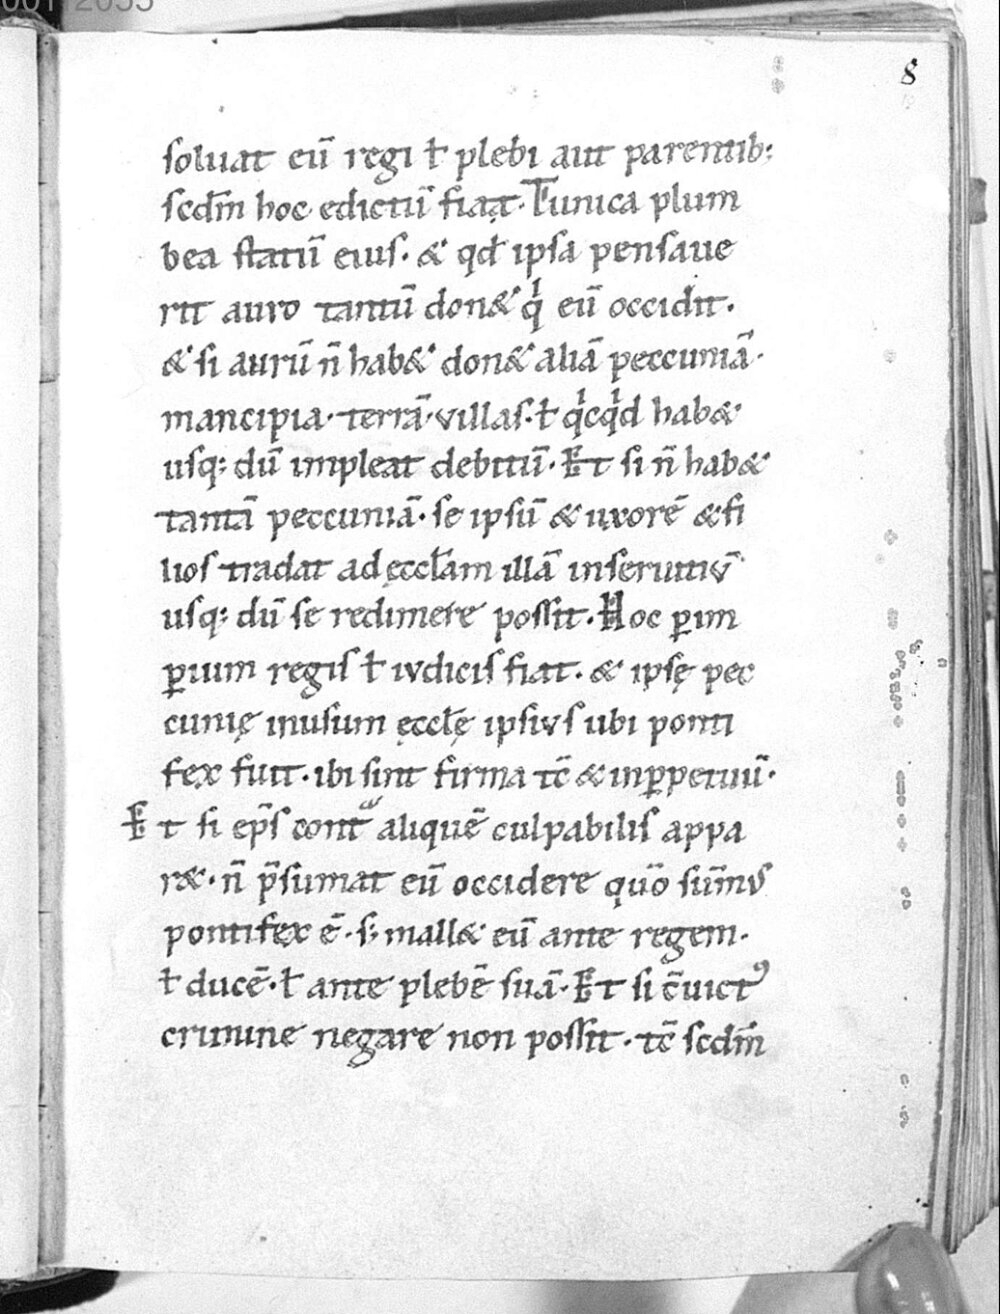 8
soluat eū regi ł plebi aut parentib;
scdm̄ hoc edictū fiat. Tunica plum
bea statū eius. & qđ ipsa pensaue
rit auro tantū don& qⁱ eū occidit.
& si aurū n̄ hab& don& aliā peccuniā.
mancipia. terrā. villas. ł qⁱcqⁱd hab&
usq; dū impleat debitū. Et si n̄ hab&
tantā peccuniā. se ipsū & uxorē & fi
lios tradat ad ęccłam illā in seruitiū
usq; dū se redimere possit. Hoc ꝑ im
ꝑium regis ł iudicis fiat. & ipsę pec
cunię in usum ęccłę ipsius ubi ponti
fex fuit. ibi sint firma tc̄ & inꝑpetuū.
Et si ep̄s contᵃ aliquē culpabilis appa
r&. n̄ p̄sumat eū occidere quō sūmus
pontifex ē. s; mall& eū ante regem.
ł ducē. ł ante plebē suā. Et si c̄uictꝰ
crimine negare non possit. tc̄ scdm̄